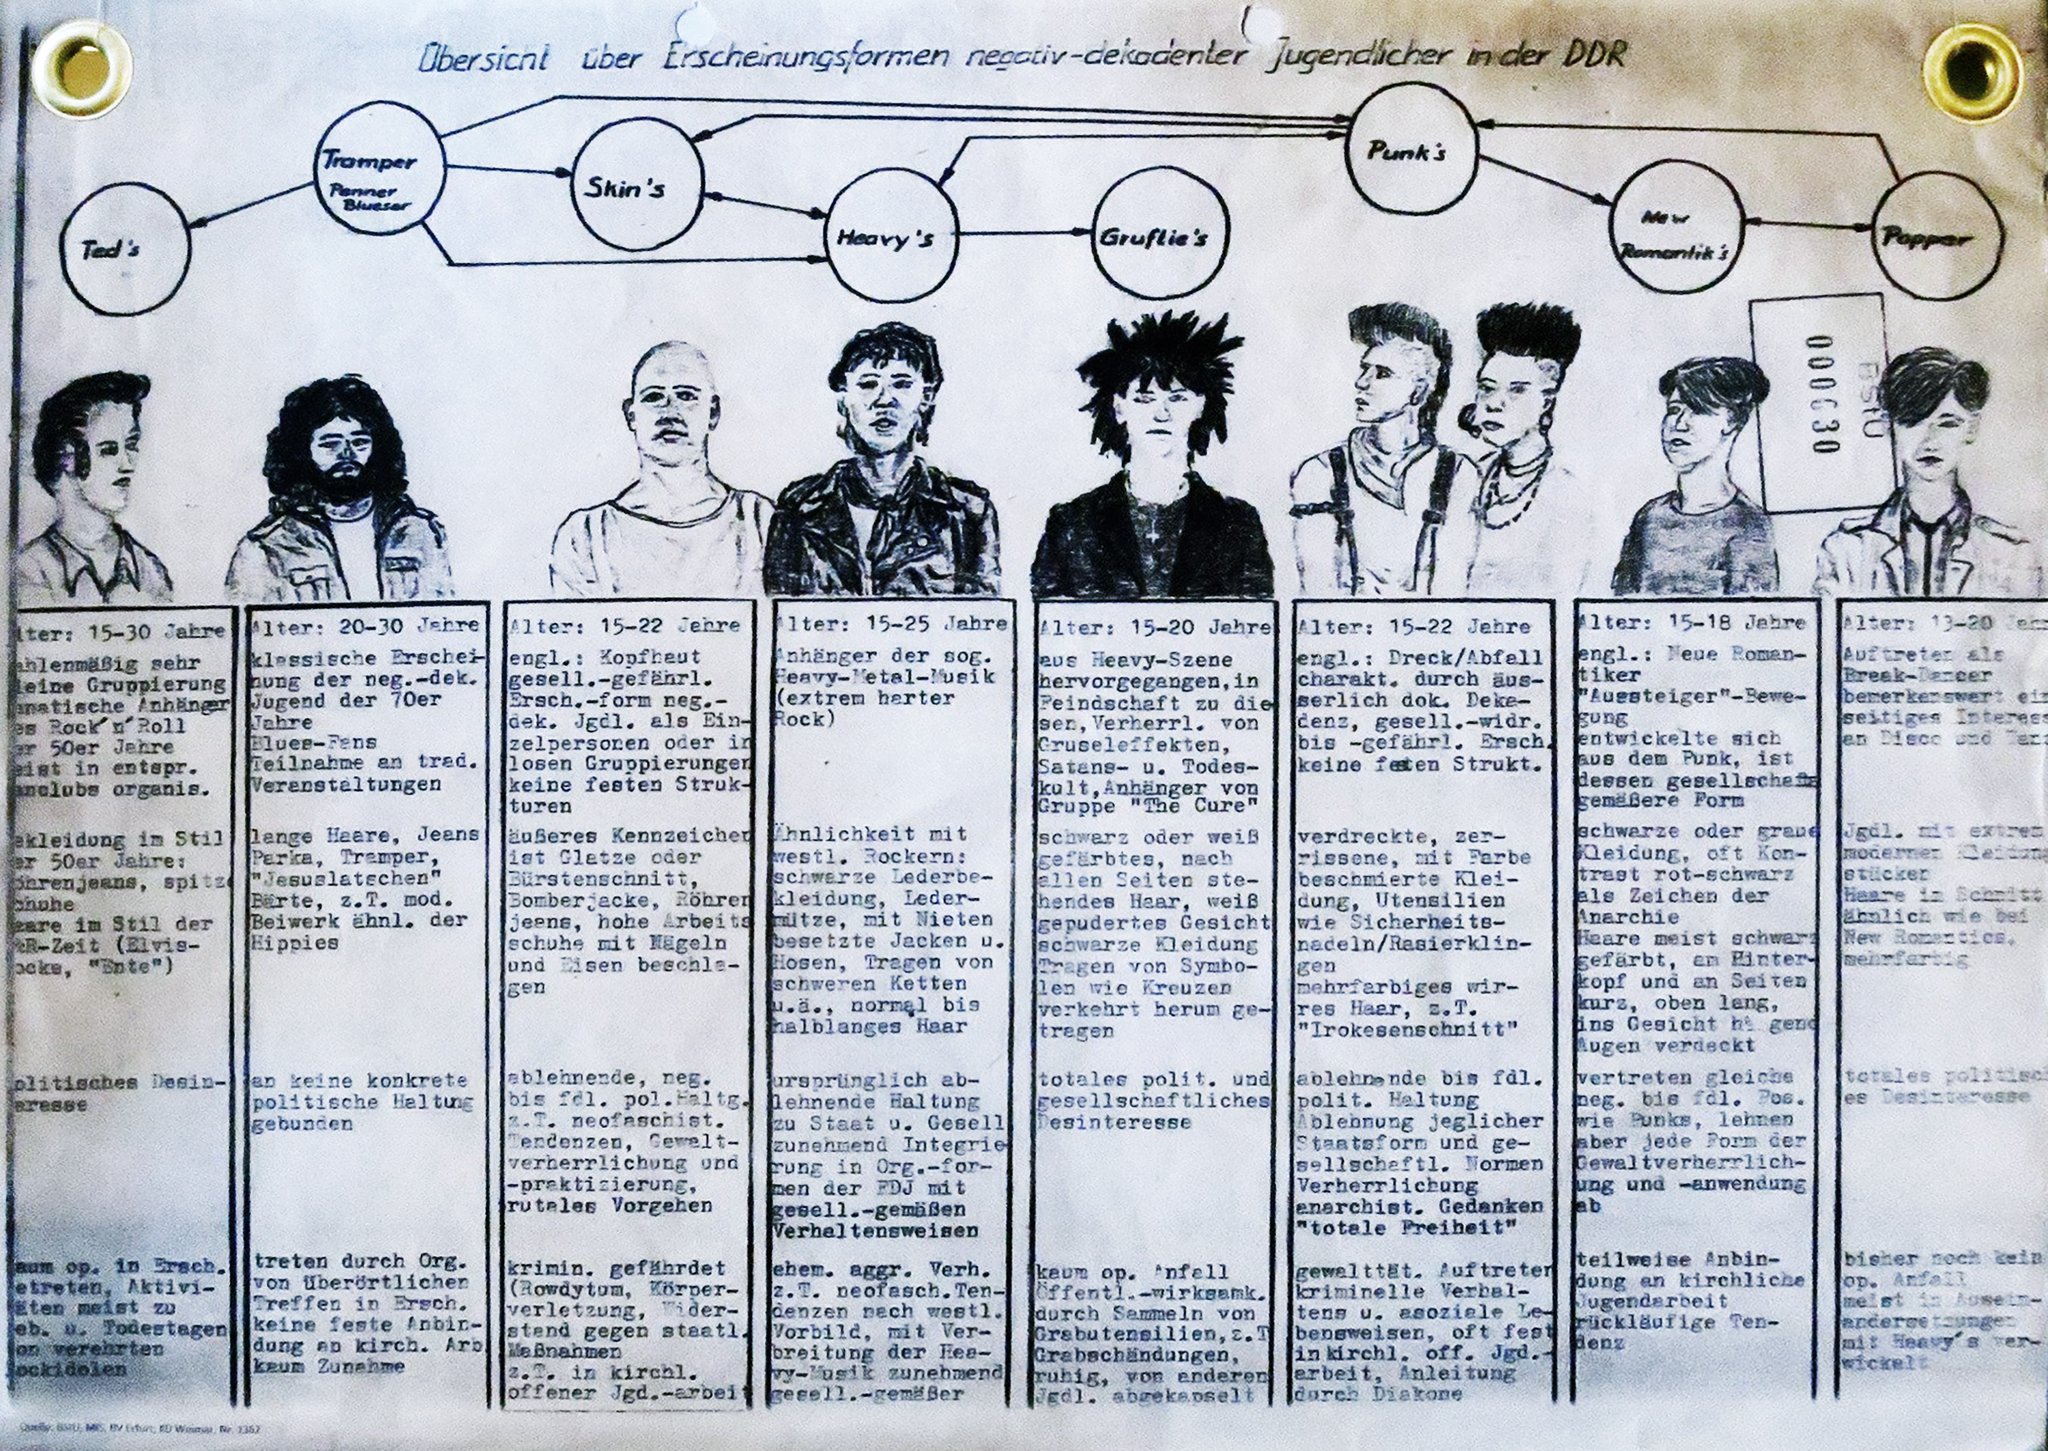 Übersicht über Erscheinungsformen negativ-dekadenter Jugendlicher in der DDR
Tramper
Penner
Blueser
Ted's
Skin's
Heavy's
Gruftie's
Punk's
New
Romantik's
Popper
000030
BStU
lter: 15-30 Jahre
ahlenmäßig sehr
leine Gruppierung
anatische Anhänger
es Rock'n'Roll
er 50er Jahre
eist in entspr.
anclubs organis.
ekleidung im Stil
er 50er Jahre:
öhrenjeans, spitze
chuhe
aare im Stil der
R-Zeit (Elvis-
ocke, "Ente")
olitisches Desin-
eresse
aum op. in Ersch.
etreten, Aktivi-
äten meist zu
eb. u. Todestagen
on verehrten
ockidolen
Alter: 20-30 Jahre
klassische Erschei-
nung der neg.-dek.
Jugend der 70er
Jahre
Blues-Fans
Teilnahme an trad.
Veranstaltungen
lange Haare, Jeans
Parka, Tramper,
"Jesuslatschen"
Bärte, z.T. mod.
Beiwerk ähnl. der
Hippies
an keine konkrete
politische Haltung
gebunden
treten durch Org.
von überörtlichen
Treffen in Ersch.
keine feste Anbin-
dung an kirch. Arb
kaum Zunahme
Alter: 15-22 Jahre
engl.: Kopfhaut
gesell.-gefährl.
Ersch.-form neg.-
dek. Jgdl. als Ein-
zelpersonen oder in
losen Gruppierungen
keine festen Struk-
turen
äußeres Kennzeichen
ist Glatze oder
Bürstenschnitt,
Bomberjacke, Röhren
jeans, hohe Arbeits
schuhe mit Nägeln
und Eisen beschla-
gen
ablehnende, neg.
bis fdl. pol.Haltg.
z.T. neofaschist.
Tendenzen, Gewalt-
verherrlichung und
-praktizierung,
rutales Vorgehen
krimin. gefährdet
(Rowdytum, Körper-
verletzung, Wider-
stand gegen staatl.
Maßnahmen
z.T. in kirchl.
offener Jgd.-arbeit
Alter: 15-25 Jahre
Anhänger der sog.
Heavy-Metal-Musik
(extrem harter
Rock)
Ähnlichkeit mit
westl. Rockern:
schwarze Lederbe-
kleidung, Leder-
mütze, mit Nieten
besetzte Jacken u.
Hosen, Tragen von
schweren Ketten
u.ä., normal bis
halblanges Haar
ursprünglich ab-
lehnende Haltung
zu Staat u. Gesell
zunehmend Integrie
rung in Org.-for-
men der FDJ mit
gesell.-gemäßen
Verhaltensweisen
ehem. aggr. Verh.
z.T. neofasch.Ten-
denzen nach westl.
Vorbild, mit Ver-
breitung der Hea-
vy-Musik zunehmend
gesell.-gemäßer
Alter: 15-20 Jahre
aus Heavy-Szene
hervorgegangen,in
Feindschaft zu die
sen,Verherrl. von
Gruseleffekten,
Satans- u. Todes-
kult,Anhänger von
Gruppe "The Cure"
schwarz oder weiß
gefärbtes, nach
allen Seiten ste-
hendes Haar, weiß
gepudertes Gesicht
schwarze Kleidung
Tragen von Symbo-
len wie Kreuzen
verkehrt herum ge-
tragen
totales polit. und
gesellschaftliches
Desinteresse
kaum op. Anfall
Öffentl.-wirksamk.
durch Sammeln von
Grabutensilien,z.T
Grabschändungen,
ruhig, von anderen
Jgdl. abgekapselt
Alter: 15-22 Jahre
engl.: Dreck/Abfall
charakt. durch äus-
serlich dok. Deka-
denz, gesell.-widr.
bis -gefährl. Ersch.
keine festen Strukt.
verdreckte, zer-
rissene, mit Farbe
beschmierte Klei-
dung, Utensilien
wie Sicherheits-
nadeln/Rasierklin-
gen
mehrfarbiges wir-
res Haar, z.T.
"Irokesenschnitt"
ablehnende bis fdl.
polit. Haltung
Ablehnung jeglicher
Staatsform und ge-
sellschaftl. Normen
Verherrlichung
anarchist. Gedanken
"totale Freiheit"
gewalttät. Auftreten
kriminelle Verhal-
tens u. asoziale Le-
bensweisen, oft fest
in kirchl. off. Jgd.-
arbeit, Anleitung
durch Diakone
Alter: 15-18 Jahre
engl.: Neue Roman-
tiker
"Aussteiger"-Bewe-
gung
entwickelte sich
aus dem Punk, ist
dessen gesellschafts
gemäßere Form
schwarze oder graue
Kleidung, oft Kon-
trast rot-schwarz
als Zeichen der
Anarchie
Haare meist schwarz
gefärbt, am Hinter-
kopf und an Seiten
kurz, oben lang,
ins Gesicht hä gend
Augen verdeckt
vertreten gleiche
neg. bis fdl. Pos.
wie Punks, lehnen
aber jede Form der
Gewaltverherrlich-
ung und -anwendung
ab
teilweise Anbin-
dung an kirchliche
Jugendarbeit
rückläufige Ten-
denz
Alter: 13-20 Jahr
Auftreten als
Break-Dancer
bemerkenswert ein
seitiges Interess
an Disco und Tanz
Jgdl. mit extrem
modernen Kleidung
stücken
Haare im Schnitt
ähnlich wie bei
New Romantics,
mehrfarbig
totales politisch
es Desinteresse
bisher noch kein
op. Anfall
meist in Ausein-
andersetzungen
mit Heavy's ver-
wickelt
Quelle: BStU, MfS, BV Erfurt, KD Weimar, Nr. 1362